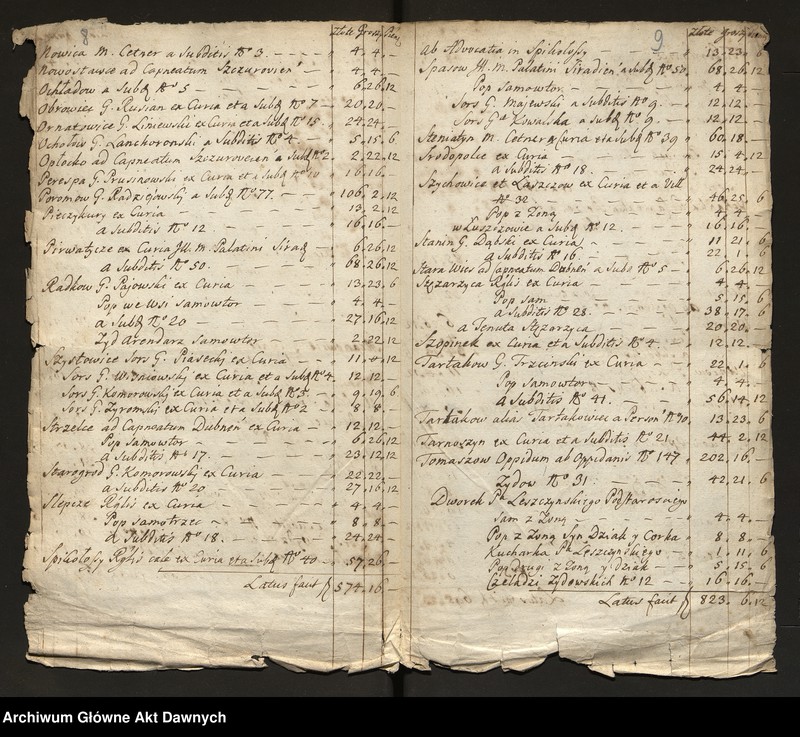 8
złote Grosz Szel
Nowica M. Cetner a Subditis No 3. — — 4. 4. —
Nowostawce ad Capneatum Szczurovien — 4. 4. —
Ochladow a Subd No 5 — — 6. 26. 12
Obrowiec G. Rusian ex Curia et a Subd No 7 — 20. 20. —
Ornatowice G. Liniewski ex Curia et a Subd No 15. 24. 24. —
Ocholw G. Lanckoronski a Subditis No 4 — 5. 15. 6
Oplocko ad Capneatum Szczurovecen a Subd No 2. 2. 22. 12
Perespa G. Prusinowski ex Curia et a Subd No 10 16. 16. —
Poromow G. Radziejowski a Subd No 77. — 106. 2. 12
Pieczykury ex Curia — — 13. 2. 12
a Subditis No 12 — — 16. 16. —
Pirwatycze ex Curia JW. M. Palatini Sirad — 6. 26. 12
a Subditis No 50. — 68. 26. 12
Radkow G. Pajowski ex Curia — 13. 23. 6
Pop we wsi Samowtor — — 4. 4. —
a Subd No 20 — — 27. 16. 12
Zyd Arendarz Samowtor — — 2. 22. 12
Szystowice Sors G. Piasecki ex Curia — 11. 4. 12
Sors G. Wiszniewski ex Curia et a Subd No 4. 12. 12. —
Sors G. Komorowski ex Curia et a Subd No 5. 9. 19. 6
Sors G. Zyromski ex Curia et a Subd No 2 — 8. 8. —
Strzelce ad Capneatum Dubneń ex Curia — 12. 12. —
Pop Samowtor — — 6. 26. 12
a Subditis No 17. — — 23. 12. 12
Starogrod G. Komorowski ex Curia — 22. 22. —
a Subditis No 20 — — 27. 16. 12
Slepcze ex Curia — — 4. 4. —
Pop samotrzec — — 8. 8. —
a Subditis No 18. — — 24. 24. —
Spikolosy cale ex Curia et a Subd No 40 — 57. 26. —
Latus faut f 574. 16. —
9
złote Grosz
Ab Advocatia in Spikolosy — — 13. 23. 6
Spasow JW. M. Palatini Siradień a Subd No 50 68. 26. 12
Pop Samowtor — — 4. 4. —
Sors G. Majewski a Subditis No 9. — 12. 12. —
Sors Kowalska a Subd No 9. — 12. 12. —
Steniatyn M. Cetner a Curia et a Subd No 39 60. 18. —
Srodopolce ex Curia — — 15. 4. 12
a Subditis No 18. — — 24. 24. —
Szychowice et Laszczow ex Curia et a Vill
No 32 — — 46. 25. 6
Pop z Zoną — — 4. 4. —
w Ludzizowie a Subd No 12. — 16. 16. —
Stanin G. Dąbski ex Curia — — 11 21. 6
a Subditis No 16. — — 22. 1. 6
Stara Wies ad Capneatum Dubneń a Subd No 5 — 6. 26. 12
ex Curia — — 4. 4. —
Pop sam — — 5. 15. 6
a Subditis No 28. — — 38. 17. 6
a Tenuta Szczorzyca — — 20. 20. —
Szopinek ex Curia et a Subditis No 4. — 12. 12. —
Tartakow G. Trzcinski ex Curia — 22. 1. 6
Pop Samowtor — — 4. 4. —
a Subditis No 41. — — 56. 14. 12
Tartakow alias Tartakowiec a Person No 10. 13. 23. 6
Tarnoszyn ex Curia et a Subditis No 21. 44. 2. 12
Tomaszow Oppidum ab Oppidanis No 147 202. 16. —
Zydow No 31. — — 42. 21. 6
Dworek Pa Leszczynskiego Podstarosciego
Sam z Zoną — — 4. 4. —
Pop z Zoną Syn Dziak y Corka — 8. 8. —
Kucharka Pa Leszczynskiego — — 1. 11. 6
Pop drugi z Zoną y dziak — — 5. 15. 6
Czeladzi Zydowskich No 12 — — 16. 16. —
Latus faut f 823. 6. 12
Archiwum Główne Akt Dawnych